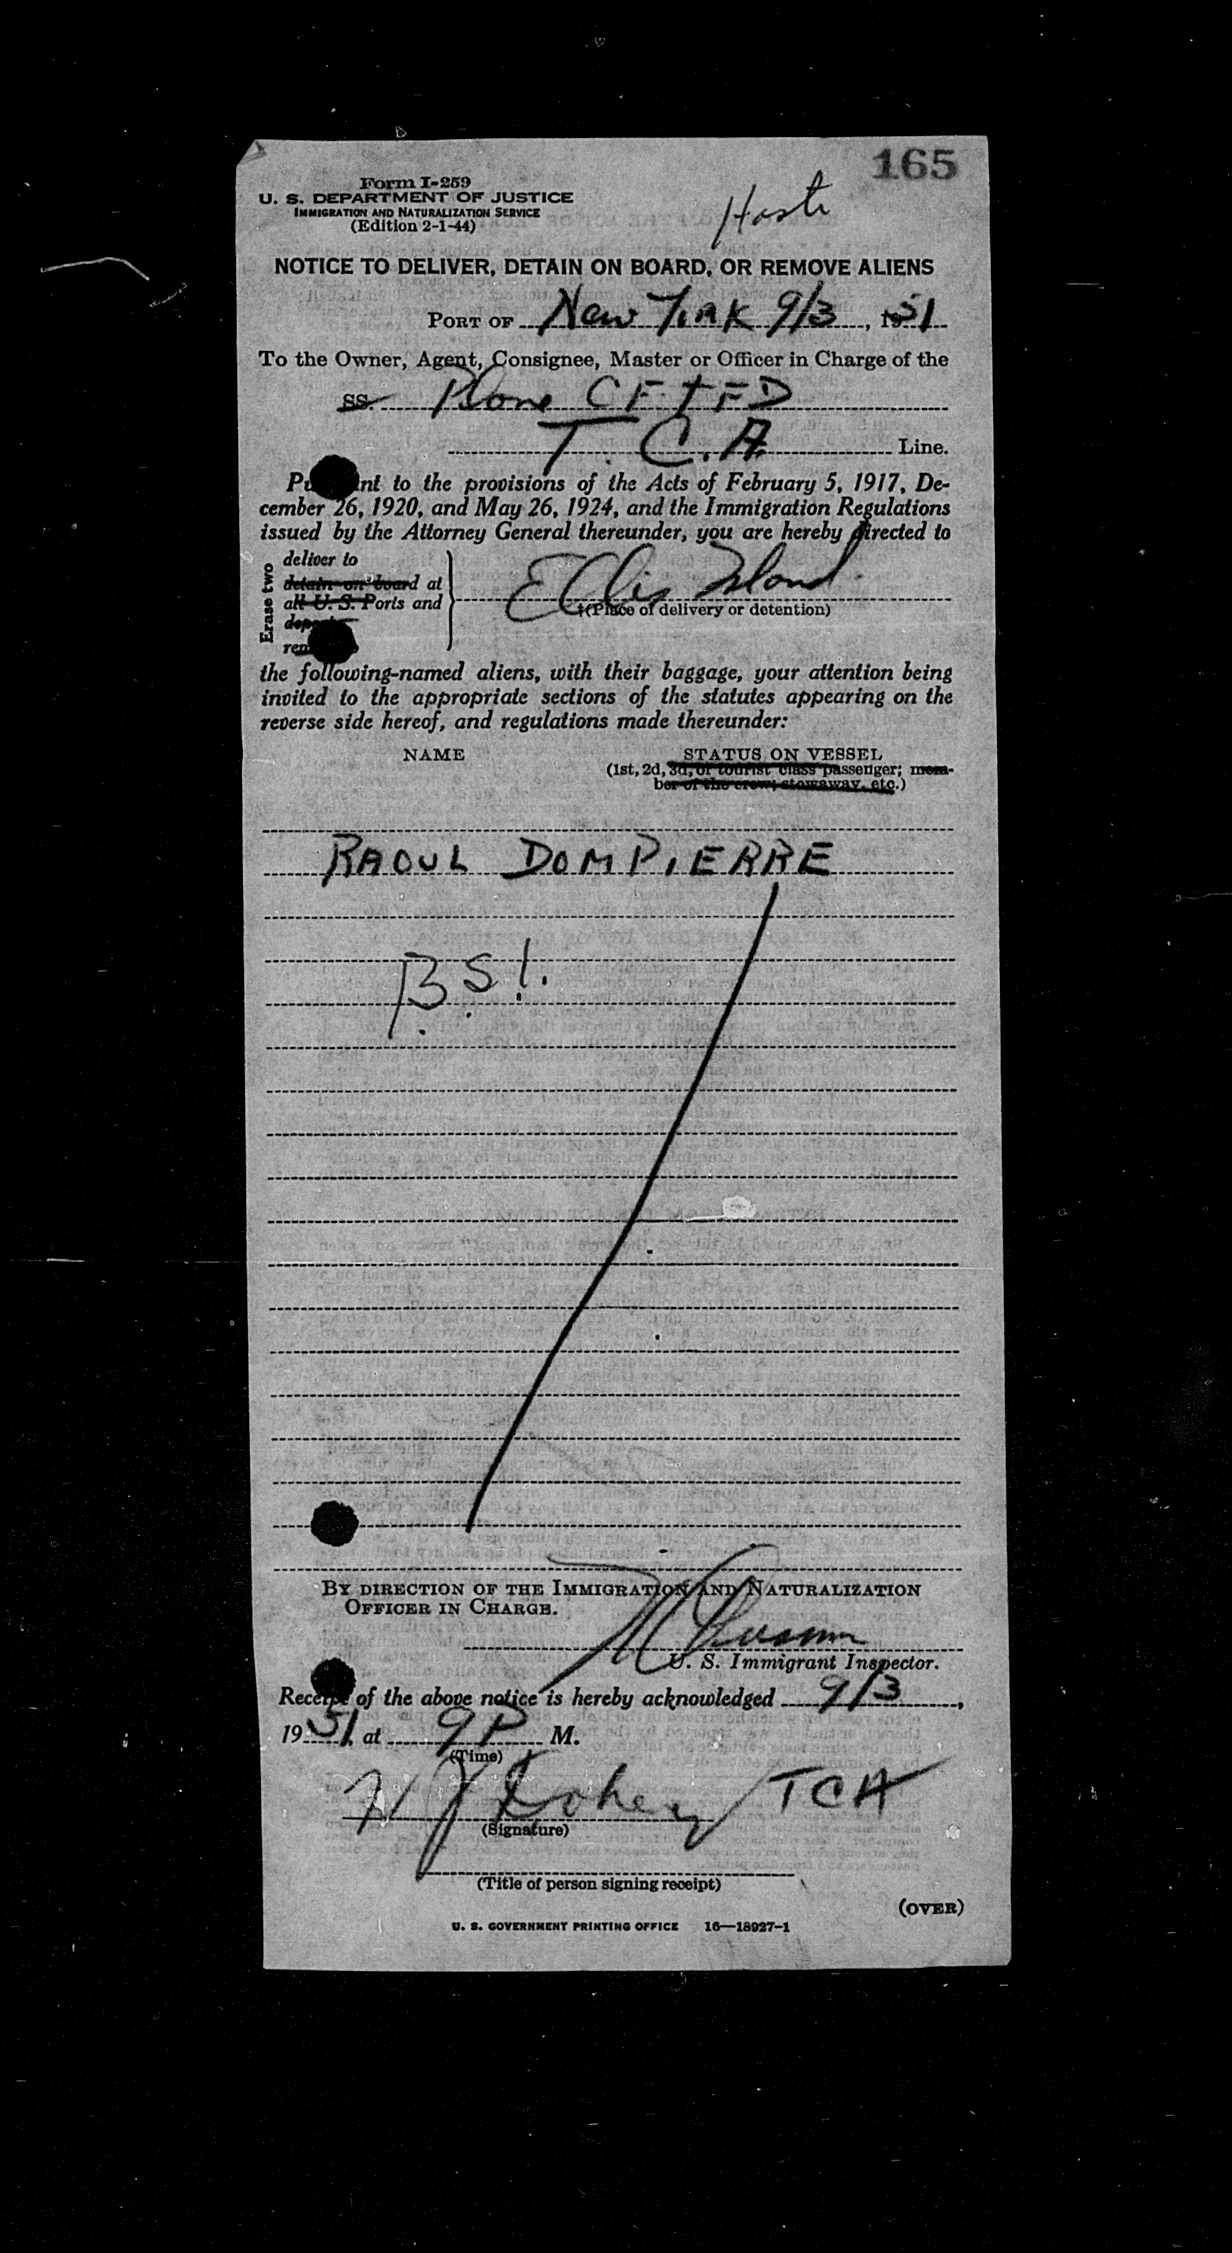 165
Form I-259
U. S. DEPARTMENT OF JUSTICE
IMMIGRATION AND NATURALIZATION SERVICE
(Edition 2-1-44)
NOTICE TO DELIVER, DETAIN ON BOARD, OR REMOVE ALIENS
PORT OF New York 9/3, 1951
To the Owner, Agent, Consignee, Master or Officer in Charge of the
SS. Plane CF-TFD
T. C. A. Line.
Pursuant to the provisions of the Acts of February 5, 1917, De-
cember 26, 1920, and May 26, 1924, and the Immigration Regulations
issued by the Attorney General thereunder, you are hereby directed to
Erase two
deliver to
detain on board at
all U. S. Ports and
Ellis Island
(Place of delivery or detention)
the following-named aliens, with their baggage, your attention being
invited to the appropriate sections of the statutes appearing on the
reverse side hereof, and regulations made thereunder:
NAME STATUS ON VESSEL
(1st, 2d, 3d, or tourist class passenger; mem-
ber of the crew; stowaway, etc.)
RAOUL DOMPIERRE
B.S.I.
BY DIRECTION OF THE IMMIGRATION AND NATURALIZATION
OFFICER IN CHARGE.
U. S. Immigrant Inspector.
Receipt of the above notice is hereby acknowledged 9/3,
1951, at 9 P M.
(Time)
TCA
(Signature)
(Title of person signing receipt)
(OVER)
U. S. GOVERNMENT PRINTING OFFICE 16—18927-1